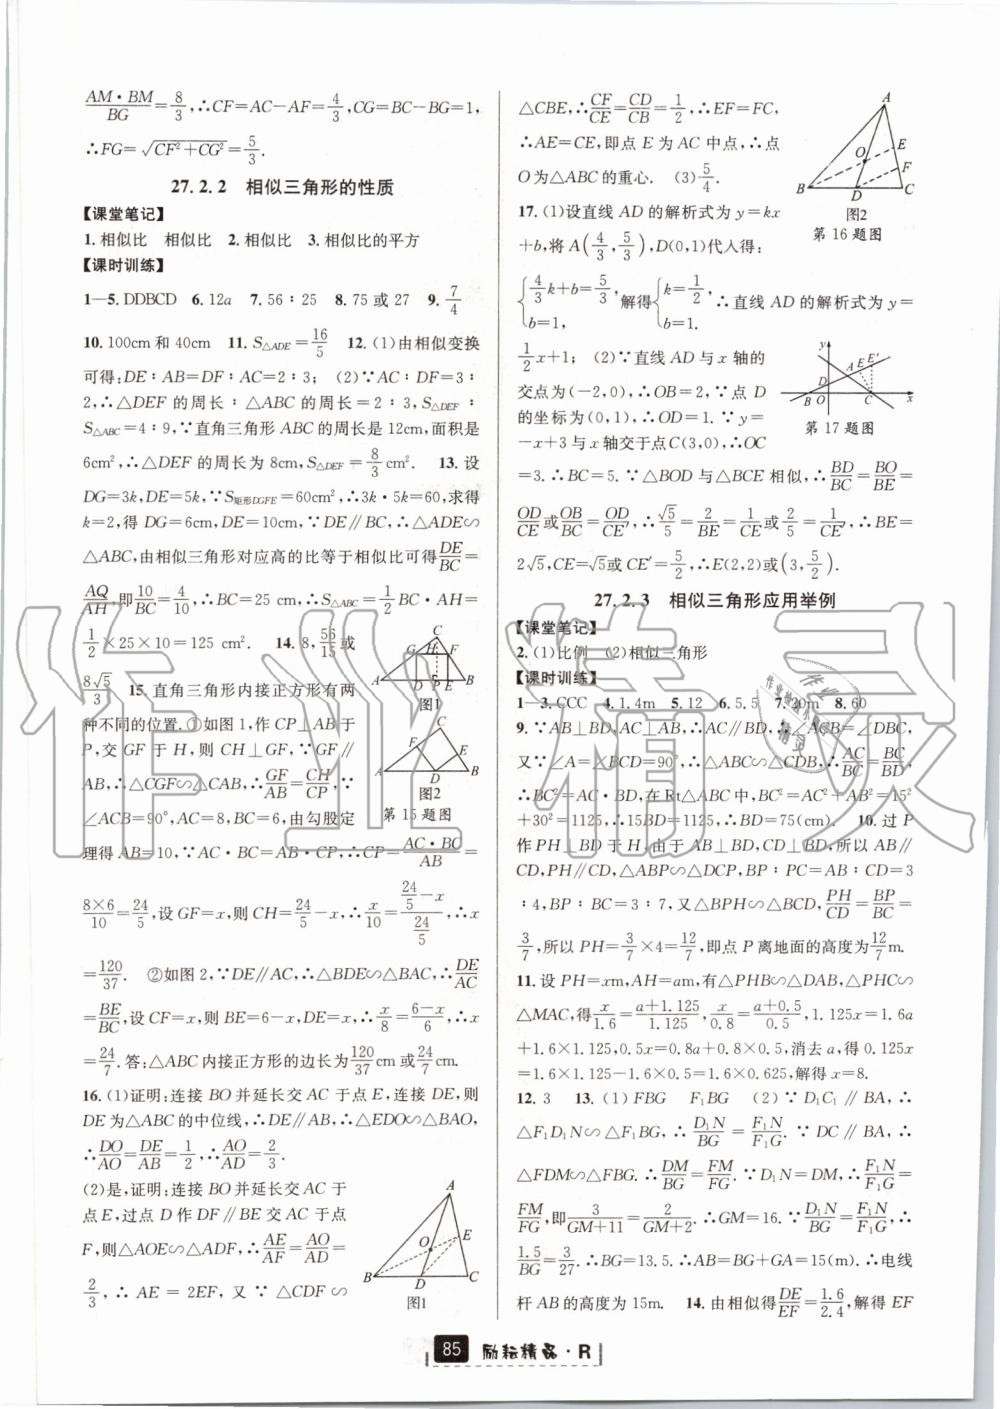 AM·BM/BG=8/3,∴CF=AC-AF=4/3,CG=BC-BG=1,
∴FG=√(CF²+CG²)=5/3.
27.2.2 相似三角形的性质
【课堂笔记】
1.相似比 相似比 2.相似比 3.相似比的平方
【课时训练】
1—5.DDBCD 6.12a 7.56∶25 8.75或27 9.7/4
10.100cm和40cm 11.S△ADE=16/5 12.(1)由相似变换
可得:DE∶AB=DF∶AC=2∶3; (2)∵AC∶DF=3∶
2,∴△DEF的周长∶△ABC的周长=2∶3,S△DEF∶
S△ABC=4∶9,∵直角三角形ABC的周长是12cm,面积是
6cm²,∴△DEF的周长为8cm,S△DEF=8/3cm². 13.设
DG=3k,DE=5k,∵S矩形DGFE=60cm²,∴3k·5k=60,求得
k=2,得DG=6cm,DE=10cm,∵DE∥BC,∴△ADE∽
△ABC,由相似三角形对应高的比等于相似比可得DE/BC=
AQ/AH,即10/BC=4/10,∴BC=25 cm,∴S△ABC=1/2BC·AH=
1/2×25×10=125 cm². 14.8,56/15或
8√5/3 15.直角三角形内接正方形有两
种不同的位置.①如图1,作CP⊥AB于
P,交GF于H,则CH⊥GF,∵GF∥
AB,∴△CGF∽△CAB,∴GF/AB=CH/CP,∵
∠ACB=90°,AC=8,BC=6,由勾股定
理得AB=10,∵AC·BC=AB·CP,∴CP=AC·BC/AB=
C
G H F
A D P E B
图1
C
F E
A D B
图2
第15题图
8×6/10=24/5,设GF=x,则CH=24/5-x,∴x/10=(24/5-x)/(24/5),∴x
=120/37. ②如图2,∵DE∥AC,∴△BDE∽△BAC,∴DE/AC
=BE/BC,设CF=x,则BE=6-x,DE=x,∴x/8=(6-x)/6,∴x
=24/7.答:△ABC内接正方形的边长为120/37cm或24/7cm.
16.(1)证明:连接BO并延长交AC于点E,连接DE,则
DE为△ABC的中位线,∴DE∥AB,∴△EDO∽△BAO,
∴DO/AO=DE/AB=1/2,∴AO/AD=2/3.
(2)是,证明:连接BO并延长交AC于
点E,过点D作DF∥BE交AC于点
F,则△AOE∽△ADF,∴AE/AF=AO/AD=
2/3,∴AE=2EF,又∵△CDF∽
A
O E
B D C
图1
△CBE,∴CF/CE=CD/CB=1/2,∴EF=FC,
∴AE=CE,即点E为AC中点,∴点
O为△ABC的重心. (3)5/4.
A
O E
F
B D C
图2
第16题图
17.(1)设直线AD的解析式为y=kx
+b,将A(4/3,5/3),D(0,1)代入得:
{4/3k+b=5/3, b=1, 解得{k=1/2, b=1. ∴直线AD的解析式为y=
1/2x+1; (2)∵直线AD与x轴的
交点为(-2,0),∴OB=2,∵点D
的坐标为(0,1),∴OD=1.∵y=
-x+3与x轴交于点C(3,0),∴OC
y
A E E′
D
B O C x
第17题图
=3.∴BC=5.∵△BOD与△BCE相似,∴BD/BC=BO/BE=
OD/CE或OB/BC=OD/CE′,∴√5/5=2/BE=1/CE或2/5=1/CE′,∴BE=
2√5,CE=√5或CE′=5/2,∴E(2,2)或(3,5/2).
27.2.3 相似三角形应用举例
【课堂笔记】
2.(1)比例 (2)相似三角形
【课时训练】
1—3.CCC 4.1.4m 5.12 6.5.5 7.20m 8.60
9.∵AB⊥BD,AC⊥AB,∴AC∥BD,∴∠ACB=∠DBC,
又∵∠A=∠BCD=90°,∴△ABC∽△CDB,∴AC/BC=BC/BD,
∴BC²=AC·BD,在Rt△ABC中,BC²=AC²+AB²=15²
+30²=1125,∴15BD=1125,∴BD=75(cm). 10.过P
作PH⊥BD于H,由于AB⊥BD,CD⊥BD,所以AB∥
CD,PH∥CD,∴△ABP∽△DCP,BP∶PC=AB∶CD=3
∶4,BP∶BC=3∶7,又△BPH∽△BCD,PH/CD=BP/BC=
3/7,所以PH=3/7×4=12/7,即点P离地面的高度为12/7m.
11.设PH=xm,AH=am,有△PHB∽△DAB,△PHC∽
△MAC,得x/1.6=(a+1.125)/1.125,x/0.8=(a+0.5)/0.5,∴1.125x=1.6a
+1.6×1.125,0.5x=0.8a+0.8×0.5,消去a,得0.125x
=1.6×1.125-1.6×0.5=1.6×0.625,解得x=8.
12.3 13.(1)FBG F₁BG (2)∵D₁C₁∥BA,∴
△F₁D₁N∽△F₁BG,∴D₁N/BG=F₁N/F₁G.∵DC∥BA,∴
△FDM∽△FBG.∴DM/BG=FM/FG.∵D₁N=DM,∴F₁N/F₁G=
FM/FG,即3/(GM+11)=2/(GM+2).∴GM=16.∵D₁N/BG=F₁N/F₁G,∴
1.5/BG=3/27.∴BG=13.5.∴AB=BG+GA=15(m).∴电线
杆AB的高度为15m. 14.由相似得DE/EF=1.6/2.4,解得EF
85 励耘精品·R
作业精灵